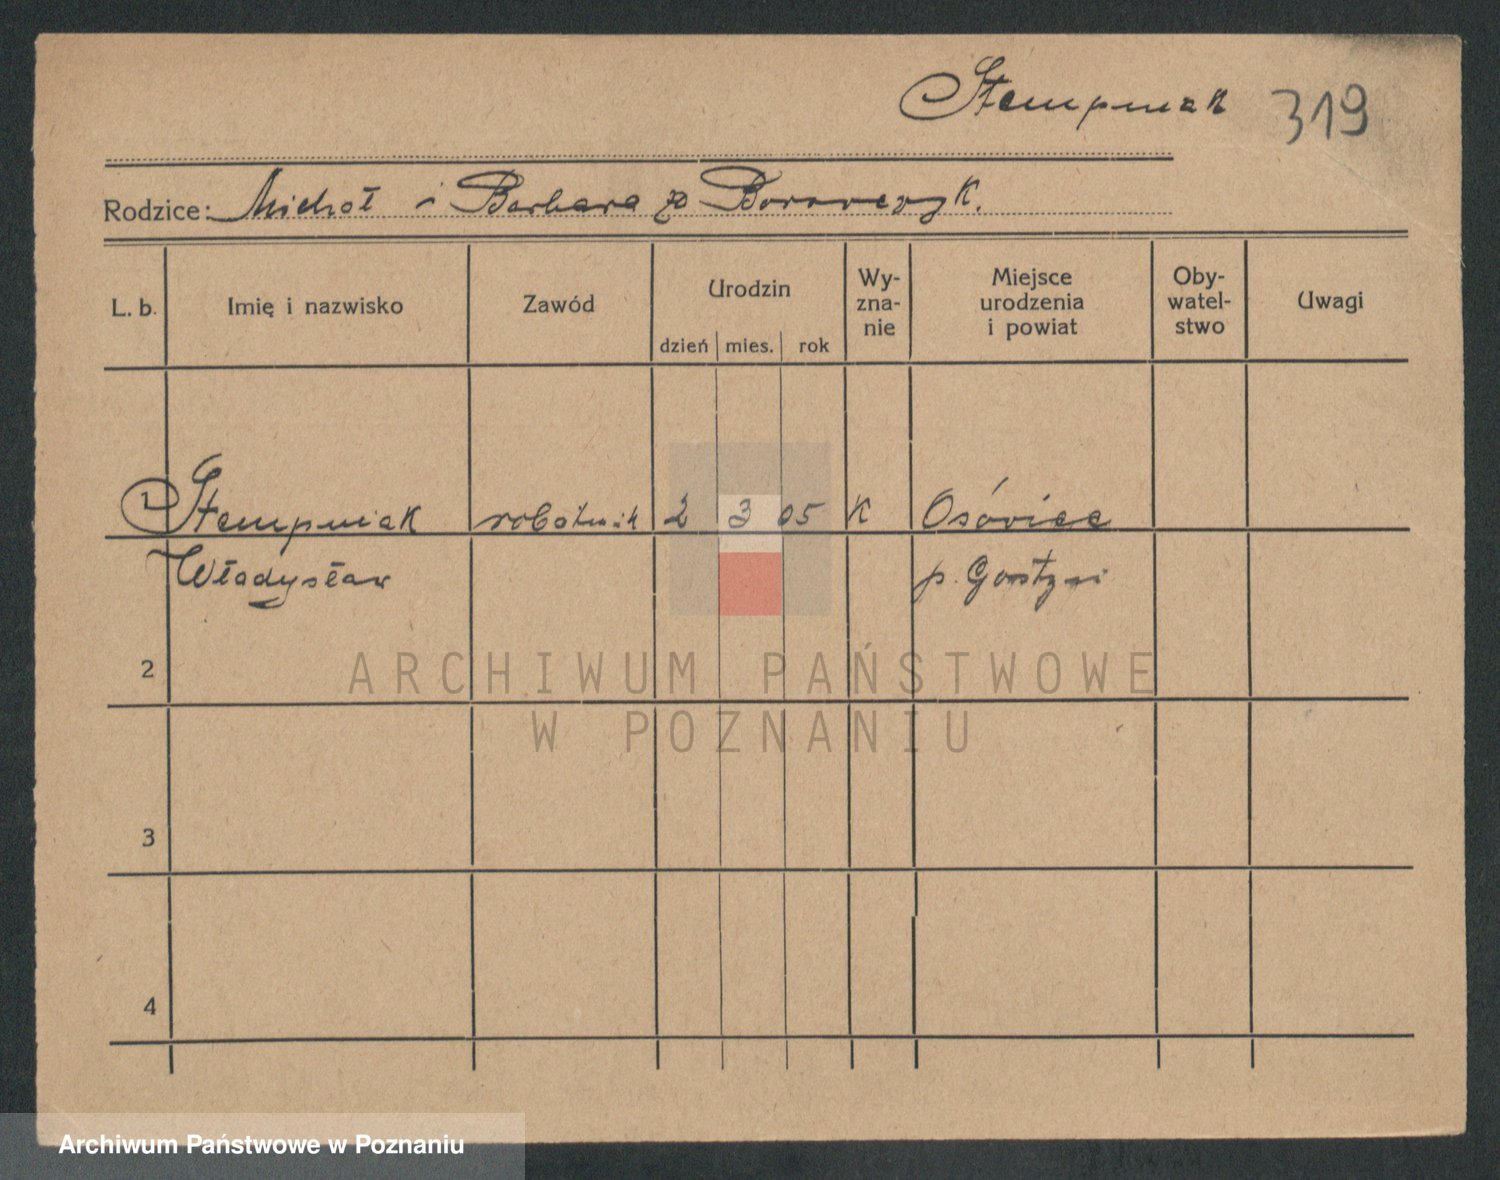 Stempniak 319
Rodzice: Michał i Barbara zd Borowczyk.
L. b. Imię i nazwisko Zawód Urodzin Wy-zna-nie Miejsce urodzenia i powiat Oby-watel-stwo Uwagi
dzień mies. rok
1 Stempniak robotnik 2 3 05 K Osówiec
Władysław p. Gostyń
2
3
4
ARCHIWUM PAŃSTWOWE
W POZNANIU
Archiwum Państwowe w Poznaniu